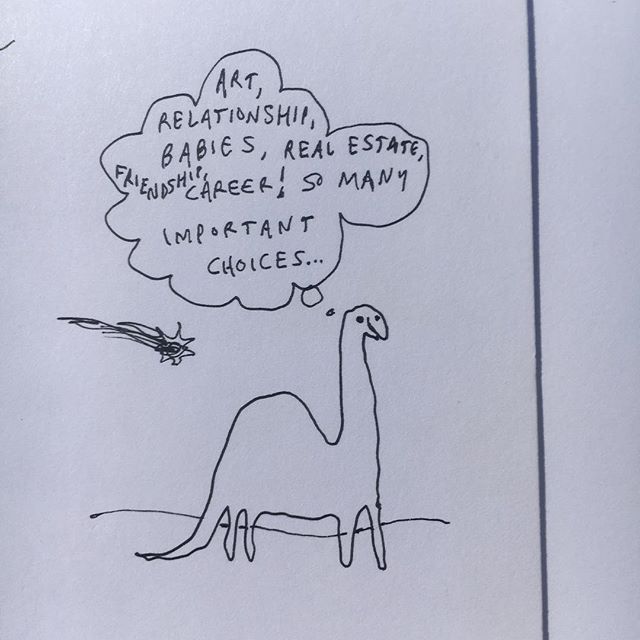 ART,
RELATIONSHIP,
BABIES, REAL ESTATE,
FRIENDSHIP, CAREER! SO MANY
IMPORTANT
CHOICES...